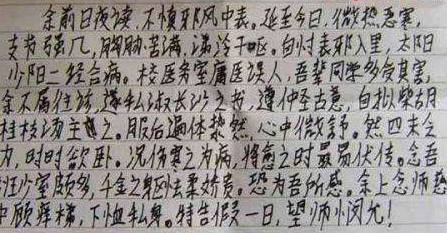 余前日夜读,不慎邪风中表。延至今日,微热恶寒,
支节强几,胸胁苦满,涕泠干呕。自忖表邪入里,太阳
少阳二经合病。校医务室庸医误人,吾辈同学多受其害,
余不屑往诊,遂私淑长沙之书,遵仲圣古意,自拟柴胡
桂枝汤主之。服后遍体漐然,心中微舒。然四末乏
力,时时欲卧。况伤寒之为病,将愈之时最易伏传。念吾
班少室颇多,千金之躯怯柔娇贵。恐为吾所感。余上念师恩
中顾萍梯,下恤私身。特告假一日,望师悯允!